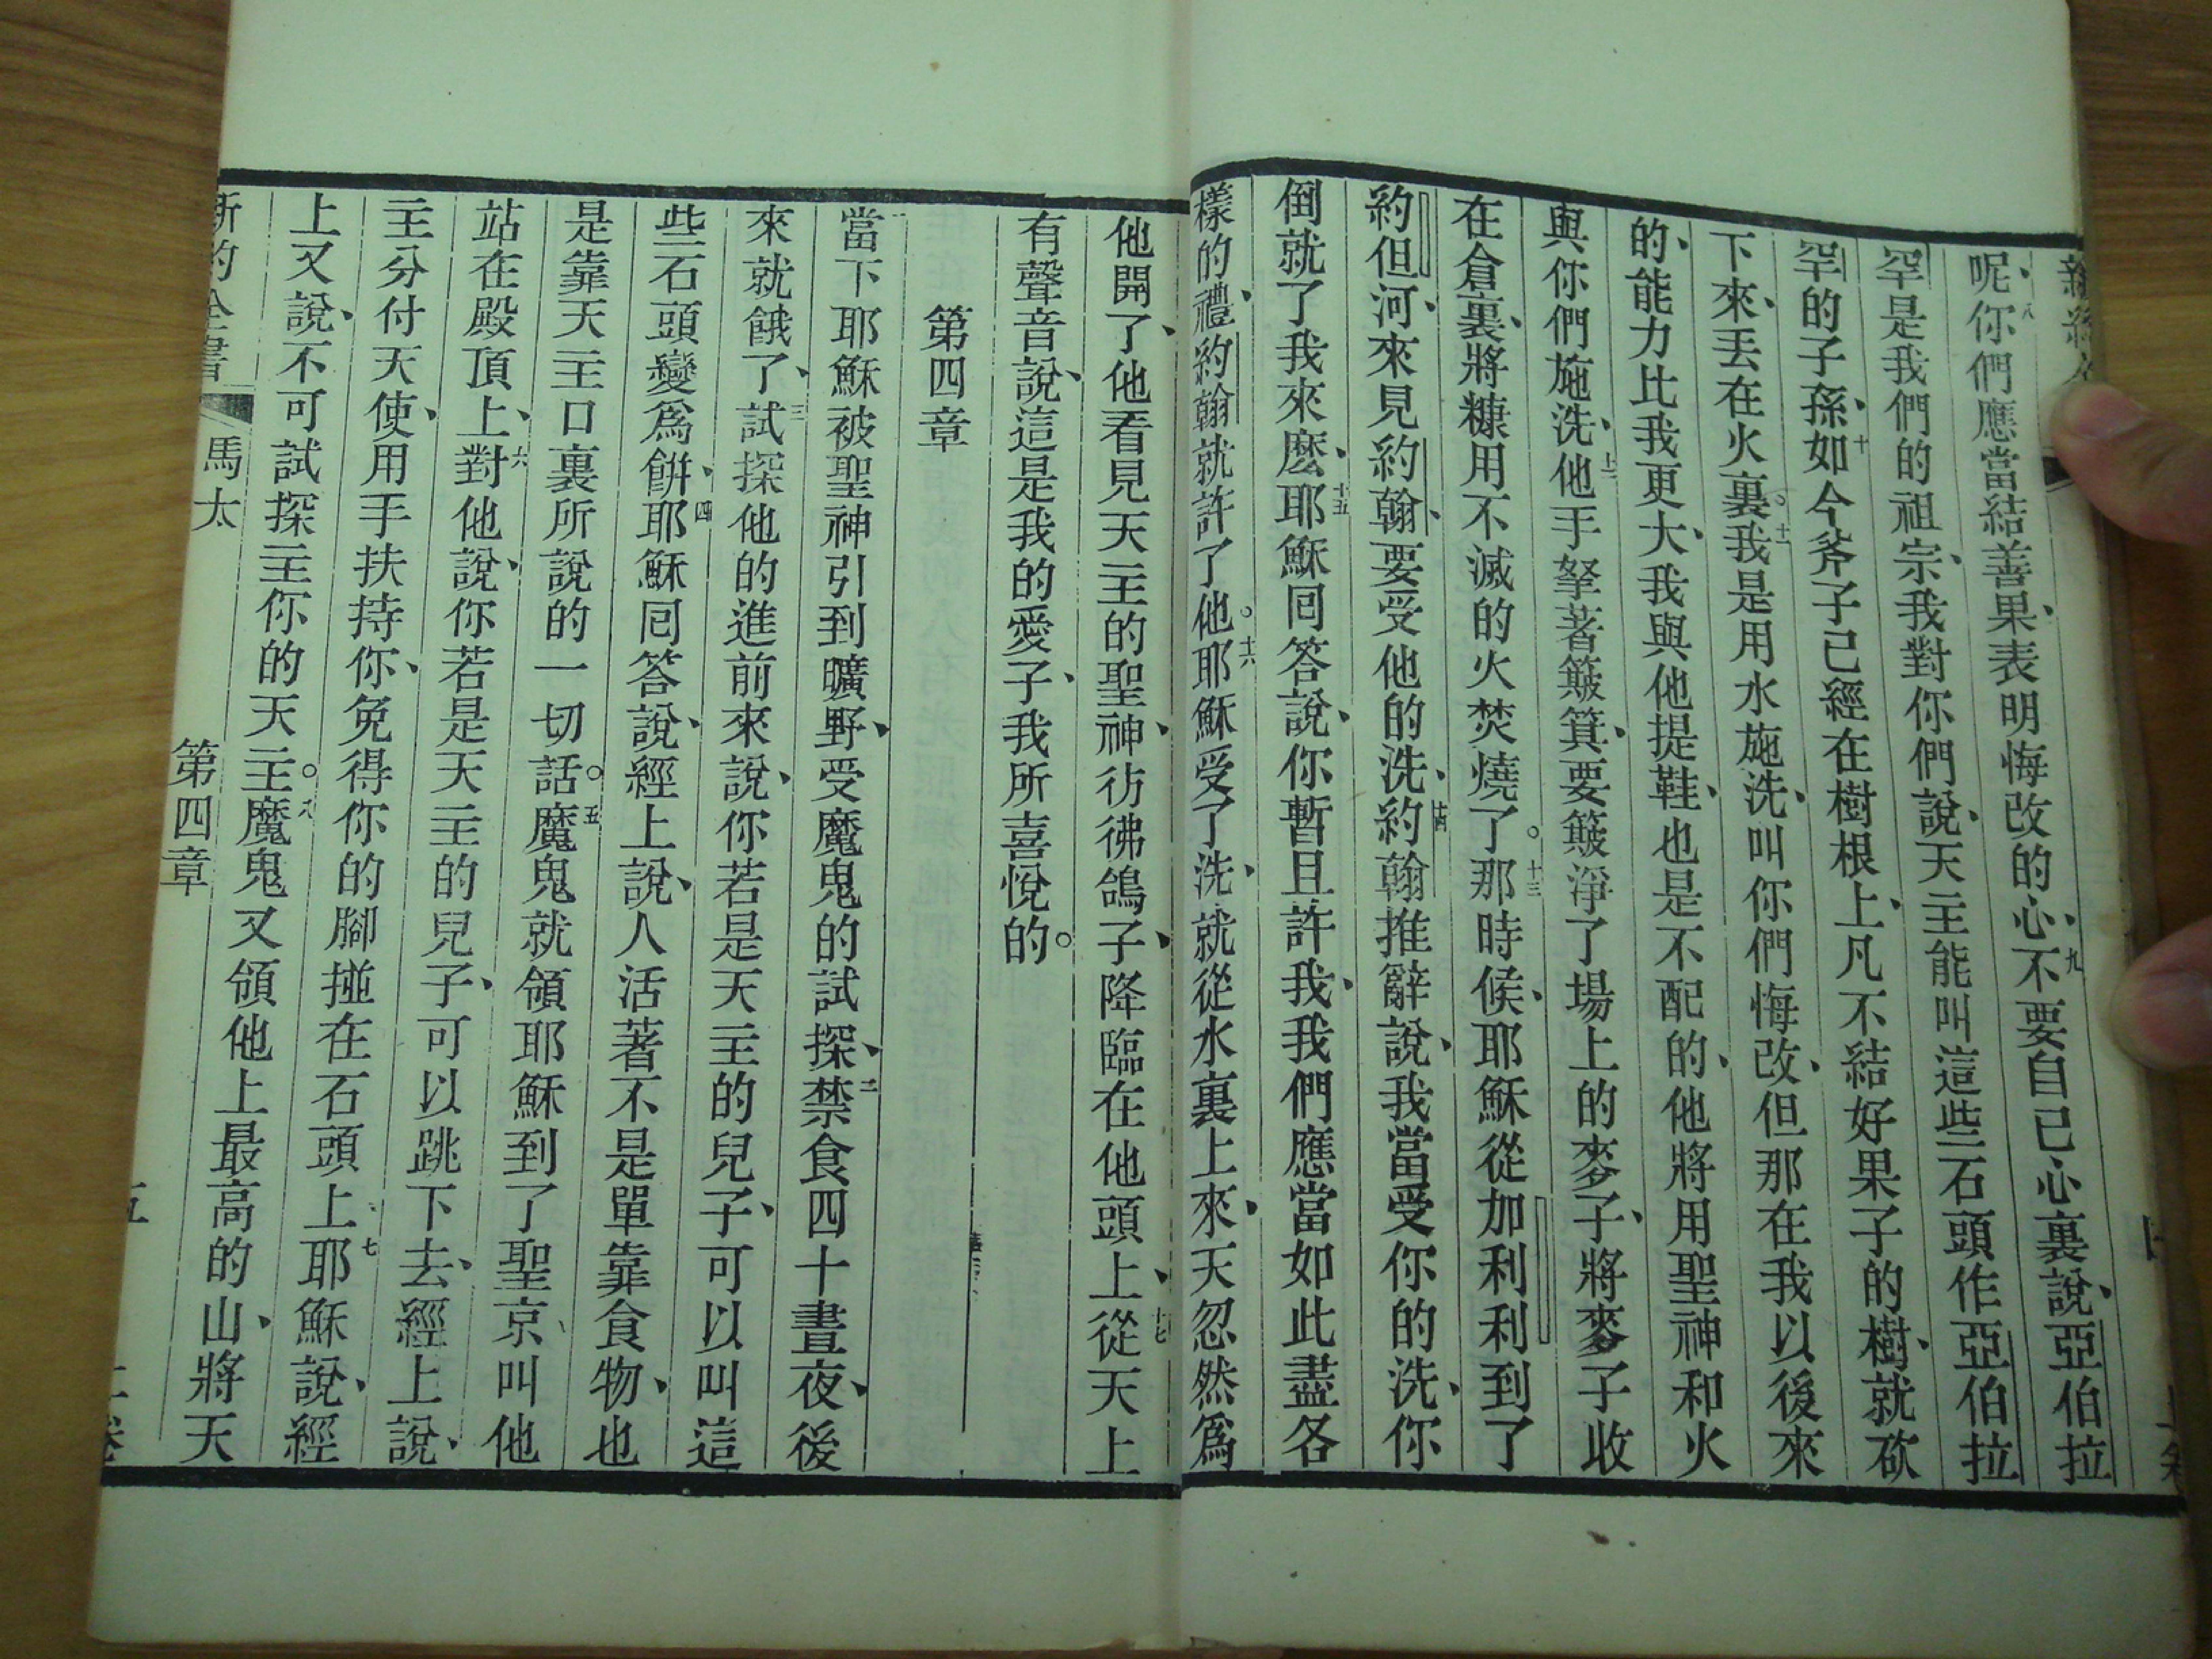 呢、八你們應當結善果、表明悔改的心、九不要自己心裏說、亞伯拉
罕是我們的祖宗、我對你們說、天主能叫這些石頭作亞伯拉
罕的子孫、十如今斧子已經在樹根上、凡不結好果子的樹、就砍
下來、丟在火裏。十一我是用水施洗、叫你們悔改、但那在我以後來
的、能力比我更大、我與他提鞋、也是不配的、他將用聖神和火
與你們施洗、十二他手拏著簸箕、要簸淨了場上的麥子、將麥子收
在倉裏、將糠用不滅的火焚燒了。十三那時候、耶穌從加利利到了
約但河、來見約翰、要受他的洗、十四約翰推辭說、我當受你的洗、你
倒就了我來麽、十五耶穌囘答說、你暫且許我、我們應當如此盡各
樣的禮、約翰就許了他。十六耶穌受了洗、就從水裏上來、天忽然爲
他開了、他看見天主的聖神、彷彿鴿子、降臨在他頭上、十七從天上
有聲音說、這是我的愛子、我所喜悅的。
第四章
當下耶穌被聖神引到曠野、受魔鬼的試探、二禁食四十晝夜、後
來就餓了、三試探他的進前來說、你若是天主的兒子、可以叫這
些石頭變爲餅、四耶穌囘答說、經上說、人活著不是單靠食物、也
是靠天主口裏所說的一切話。五魔鬼就領耶穌到了聖京、叫他
站在殿頂上、六對他說、你若是天主的兒子、可以跳下去、經上說、
主分付天使、用手扶持你、免得你的腳掽在石頭上、七耶穌說、經
上又說、不可試探主你的天主。八魔鬼又領他上最高的山、將天
新約全書 馬太 第四章 五